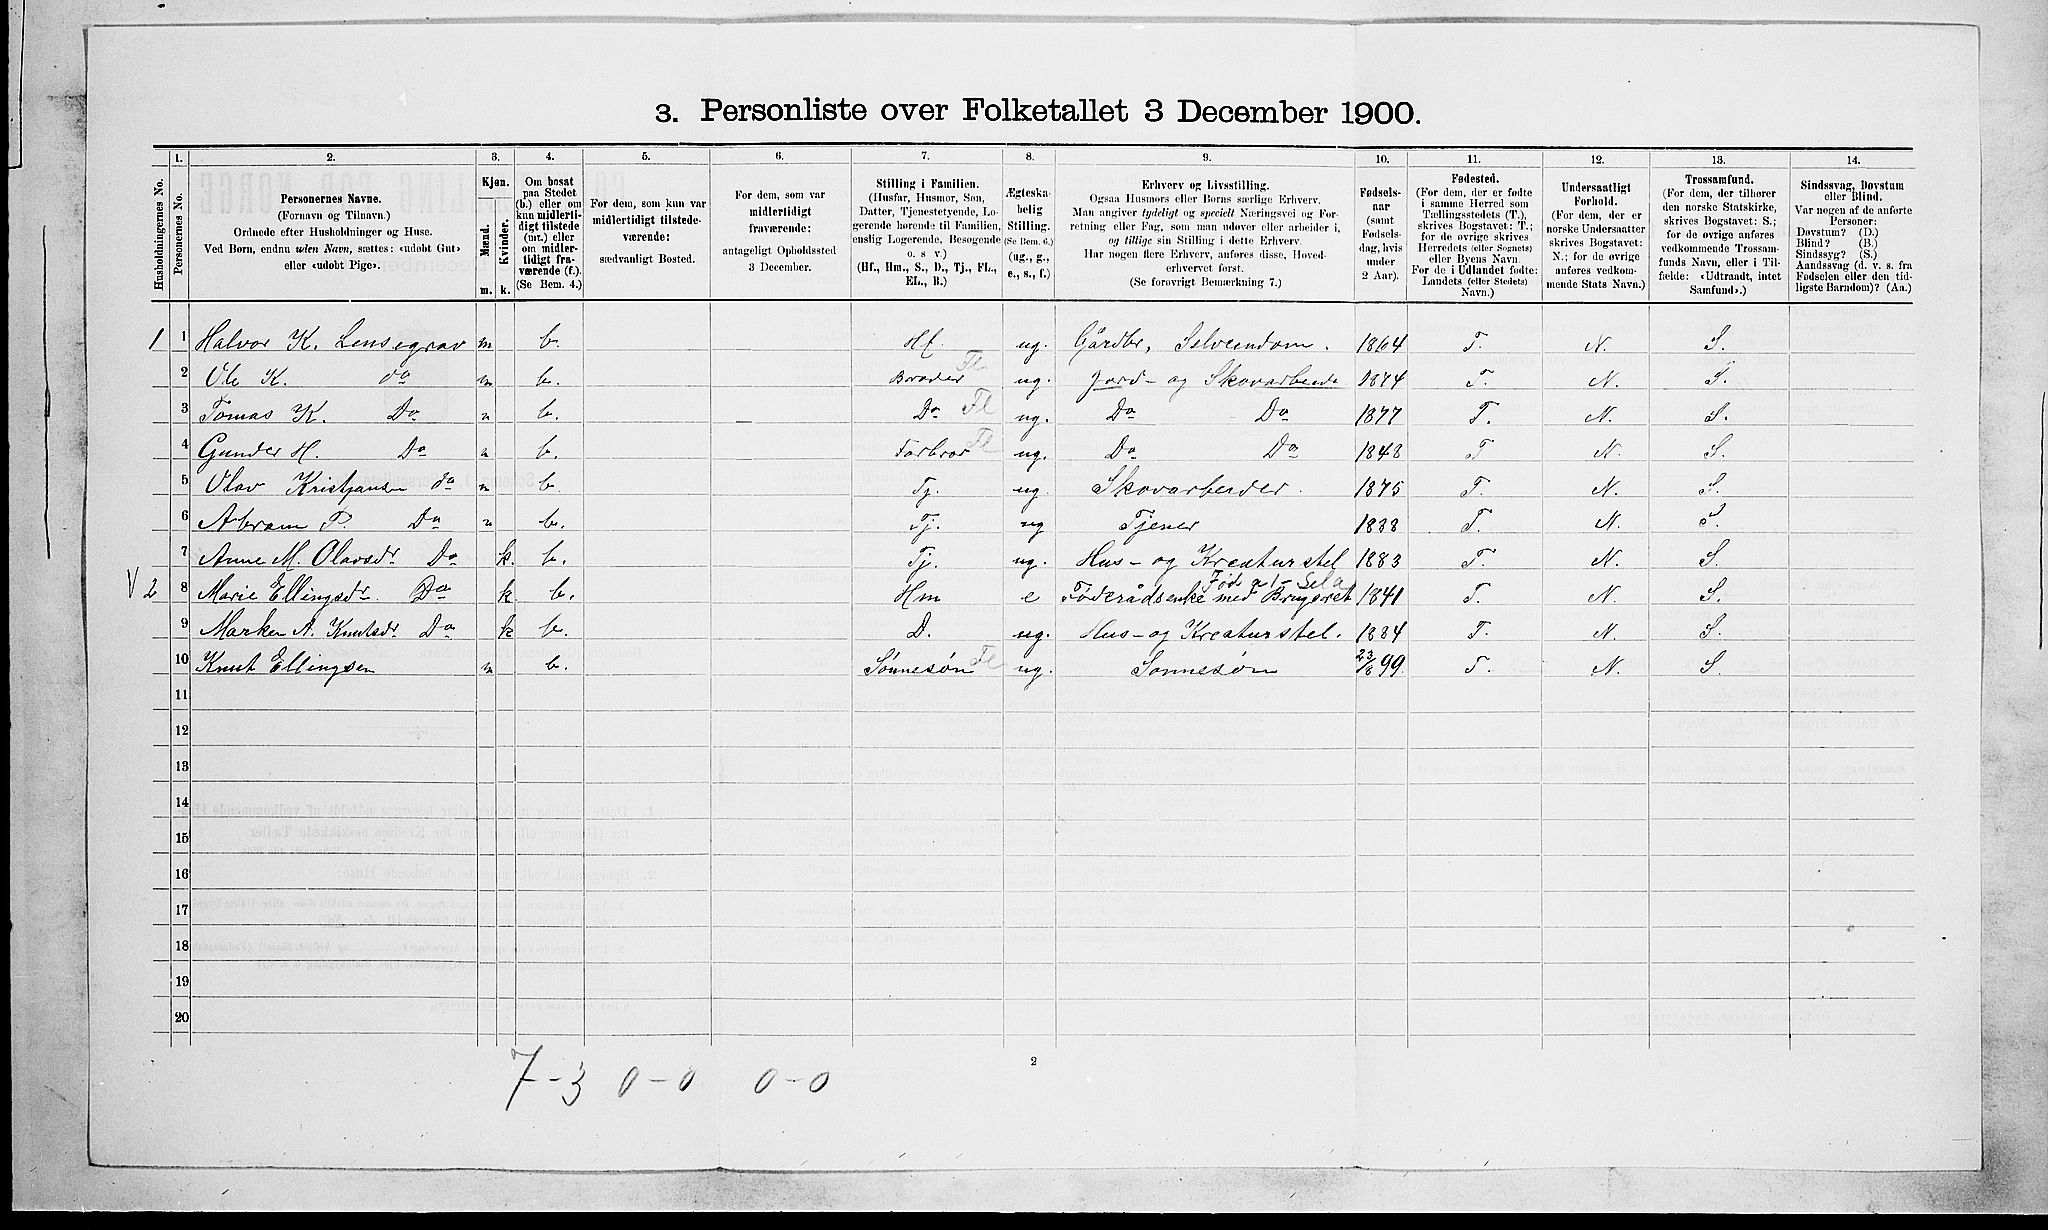 3. Personliste over Folketallet 3 December 1900.
1. 2. 3. 4. 5. 6. 7. 8. 9. 10. 11. 12. 13. 14.
Husholdningernes No.
Personernes No.
Personernes Navne.
(Fornavn og Tilnavn.)
Ordnede efter Husholdninger og Huse.
Ved Børn, endnu uden Navn, sættes: «udøbt Gut»
eller «udøbt Pige».
Kjøn.
Mænd.
Kvinder.
m. k.
Om bosat
paa Stedet
(b.) eller om
kun midlerti-
digt tilstede
(mt.) eller
om midler-
tidigt fra-
værende (f.).
(Se Bem. 4.)
For dem, som kun var
midlertidigt tilstede-
værende:
sædvanligt Bosted.
For dem, som var
midlertidigt
fraværende:
antageligt Opholdssted
3 December.
Stilling i Familien.
(Husfar, Husmor, Søn,
Datter, Tjenestetyende, Lo-
gerende hørende til Familien,
enslig Logerende, Besøgende
o. s v.)
(Hf., Hm., S., D., Tj., FL.,
EL., B.)
Ægteska-
belig
Stilling.
(Se Bem. 6.)
(ug., g.,
e., s., f.)
Erhverv og Livsstilling.
Ogsaa Husmors eller Børns særlige Erhverv.
Man angiver tydeligt og specielt Næringsvei og For-
retning eller Fag, som man udøver eller arbeider i,
og tillige sin Stilling i dette Erhverv.
Har nogen flere Erhverv, anføres disse, Hoved-
erhvervet først.
(Se forøvrigt Bemærkning 7.)
Fødsels-
aar
(samt
Fødsels-
dag, hvis
under
2 Aar).
Fødested.
(For dem, der er fødte
i samme Herred som
Tællingsstedets (T.),
skrives Bogstavet: T.;
for de øvrige skrives
Herredets (eller Sognets)
eller Byens Navn.
For de i Udlandet fødte:
Landets (eller Stedets)
Navn.)
Undersaatligt
Forhold.
(For dem, der er
norske Undersaatter
skrives Bogstavet:
N.; for de øvrige
anføres vedkom-
mende Stats Navn.)
Trossamfund.
(For dem, der tilhører
den norske Statskirke,
skrives Bogstavet: S.;
for de øvrige anføres
vedkommende Trossam-
funds Navn, eller i Til-
fælde: «Udtraadt, intet
Samfund».)
Sindssvag, Døvstum
eller Blind.
Var nogen af de anførte
Personer:
Døvstum? (D.)
Blind? (B.)
Sindssyg? (S.)
Aandssvag (d. v. s. fra
Fødselen eller den tid-
ligste Barndom)? (Aa.)
1 1 Halvor K. Lensegrav m b. Hf. ug. Gårdbr, Selveiendom. 1864 T. N. S.
2 Ole K. do m b. Broder Fl ug. Jord- og Skovarbeide 1874 T. N. S.
3 Tomas K. Do m b. Do Fl ug. Do Do 1877 T. N. S.
4 Gunder H. Do m b. Farbror Fl ug. Do Do 1848 T N. S.
5 Olav Kristjansen do m b. Tj. ug. Skovarbeider. 1875 T. N. S.
6 Abram P. Do m b. Tj. ug Tjener 1888 T. N. S.
7 Anne M. Olavsdr Do k. b. Tj. ug. Hus- og Kreaturstel 1883 T. N. S.
V 2 8 Marie Ellingsdr. Do k b. Hm e Føderådsenke med Brugeret 1841 T. N. S.
9 Marken A. Knutsdr Do k b. D. ug. Hus- og Kreaturstel. 1884 T. N. S.
10 Knut Ellingsen m b. Sønnesøn Fl ug. Sønnesøn 23/8 99. T. N. S.
11
12
13
14
15
16
17
18
19
20
7-3 0-0 0-0
2